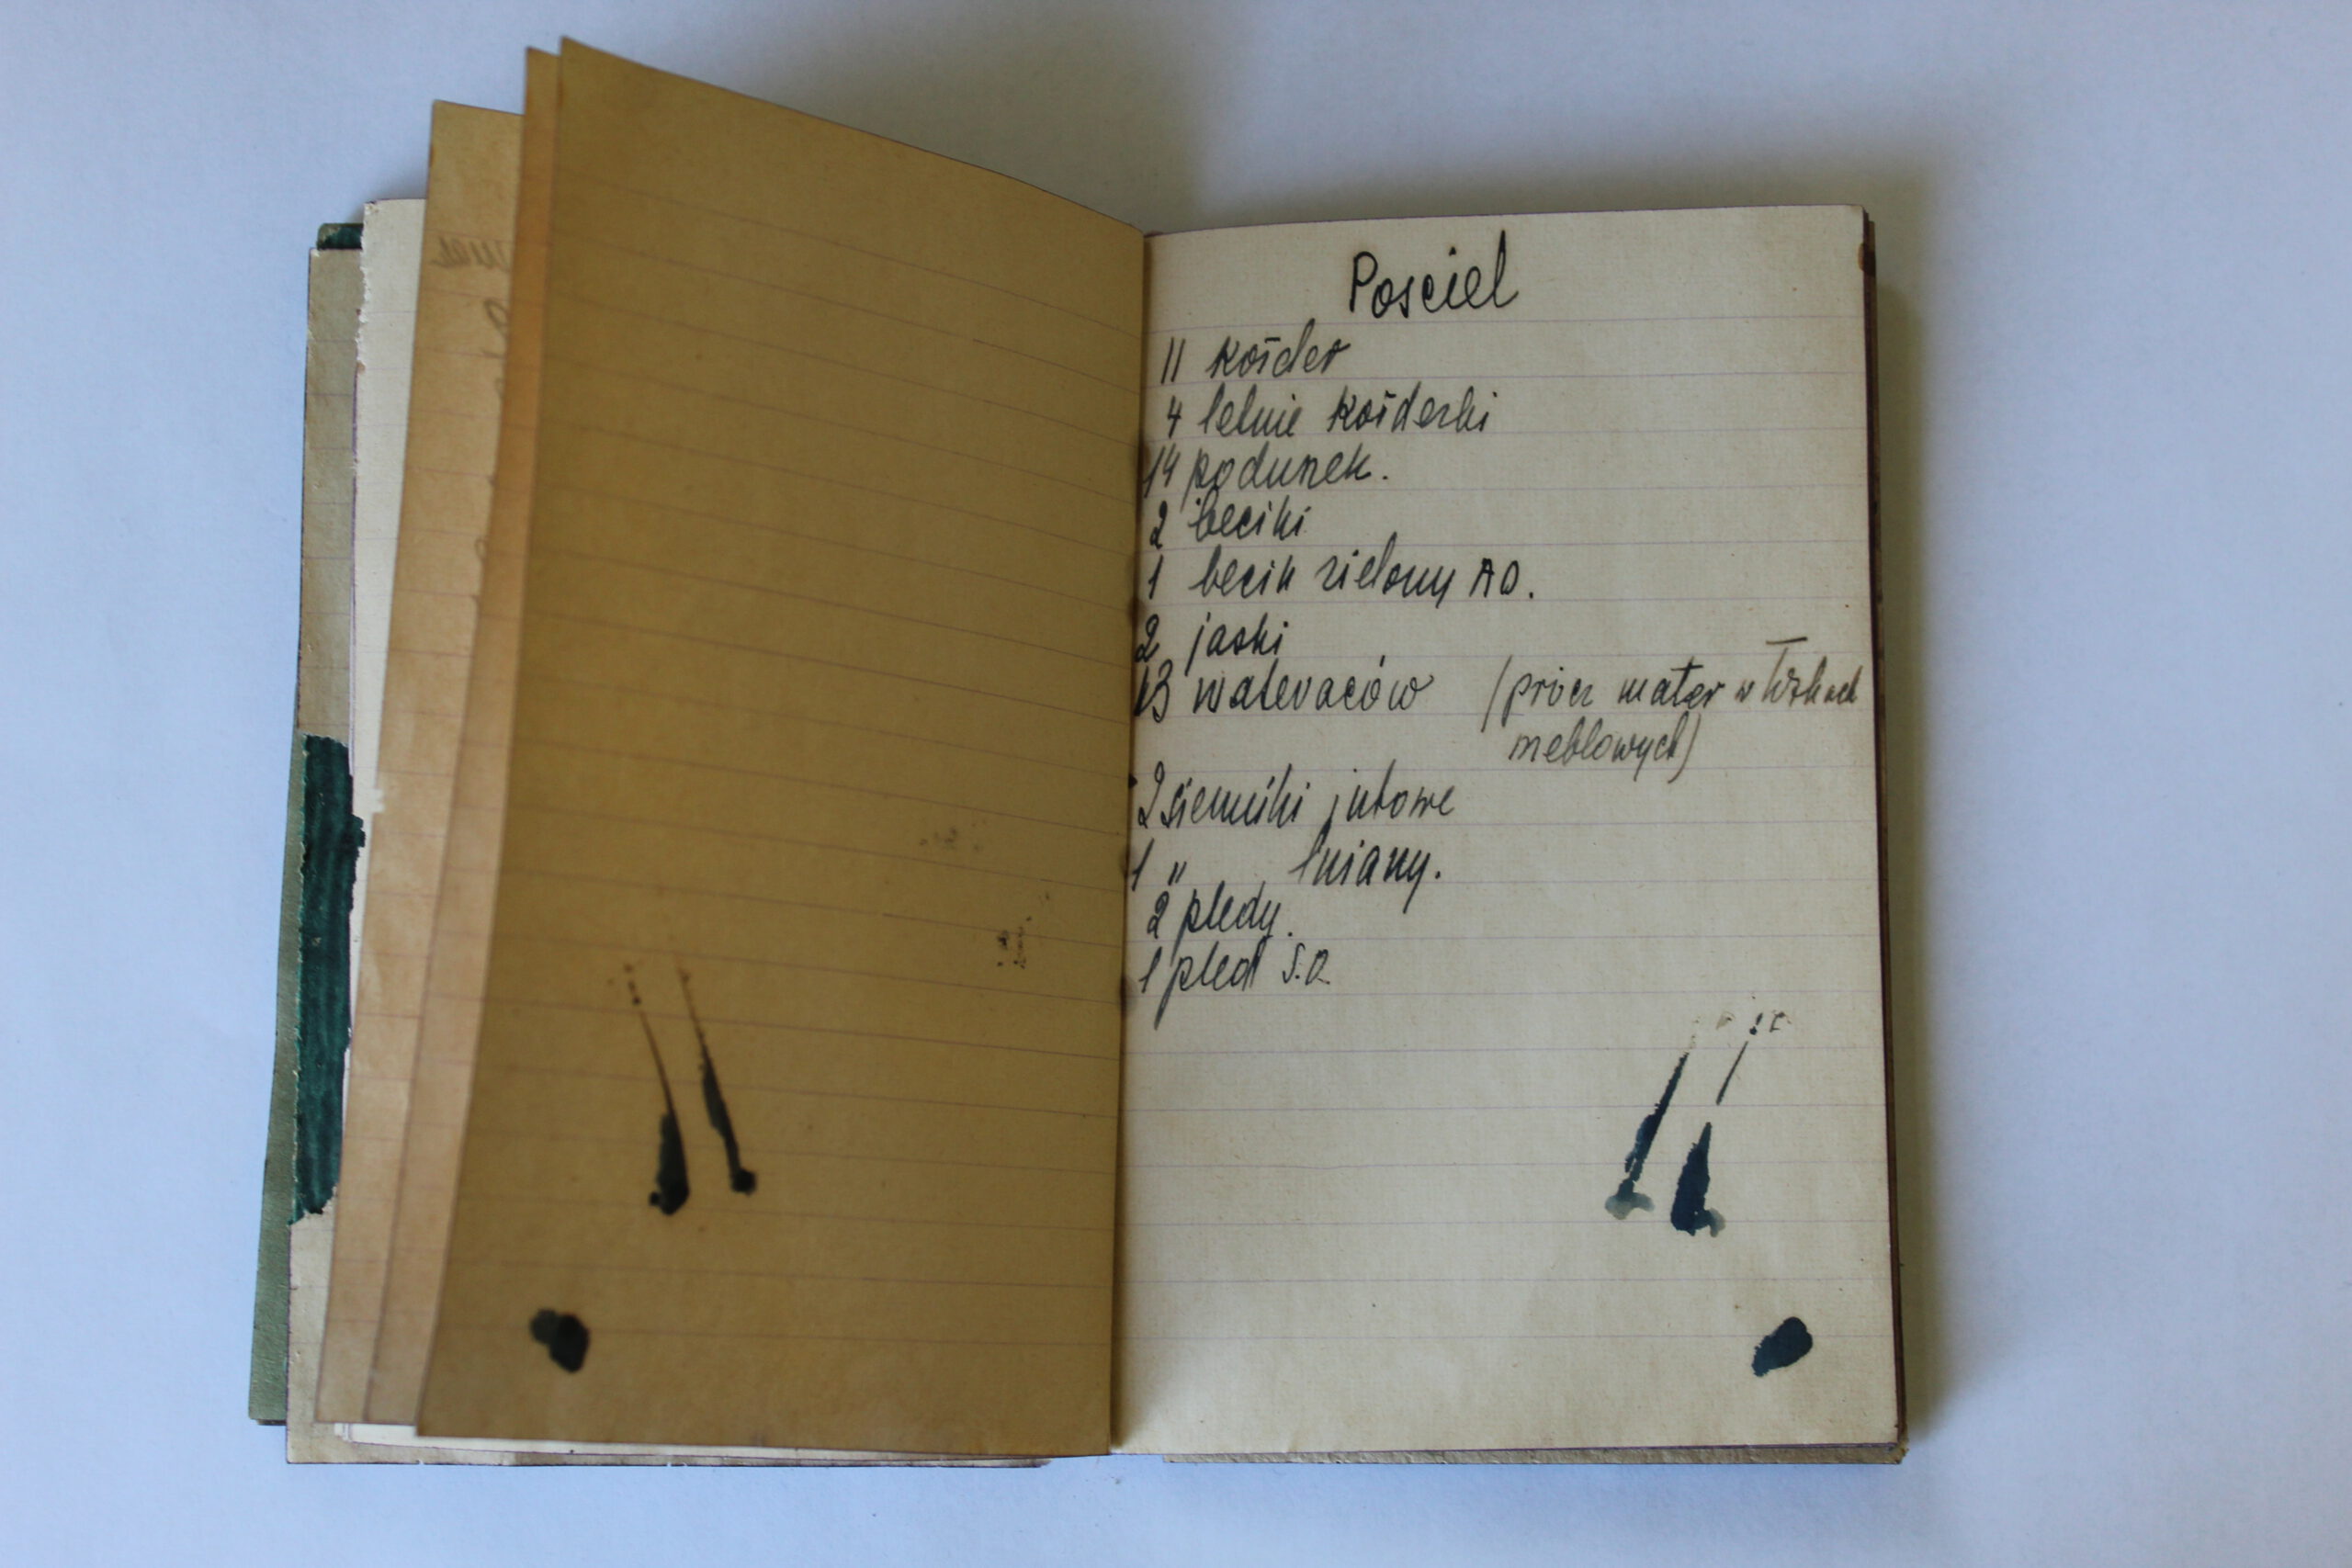 Pościel
11 kołder
4 letnie kołderki
14 poduszek.
2 beciki
1 becik zielony AO.
2 jaśki
13 materaców (prócz mater w łóżkach
meblowych)
2 sienniki jutowe
1 " lniany.
2 pledy.
1 pled S.O.